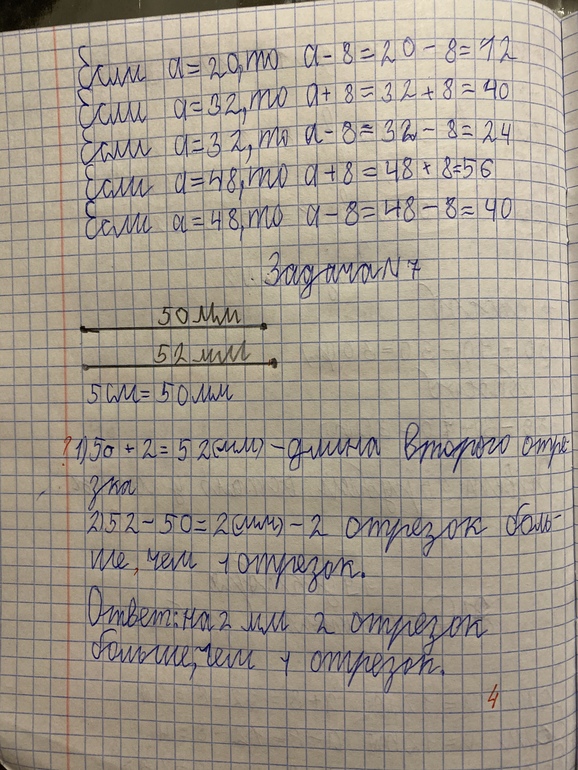 Если a=20, то a-8=20-8=12
Если a=32, то a+8=32+8=40
Если a=32, то a-8=32-8=24
Если a=48, то a+8=48+8=56
Если a=48, то a-8=48-8=40
Задача N7
50 мм
52 мм
5 см = 50 мм
? 1) 50 + 2 = 52 (мм) - длина второго отре-
зка
2) 52 - 50 = 2 (мм) - 2 отрезок боль-
ше, чем 1 отрезок.
Ответ: на 2 мм 2 отрезок
больше, чем 1 отрезок.
4